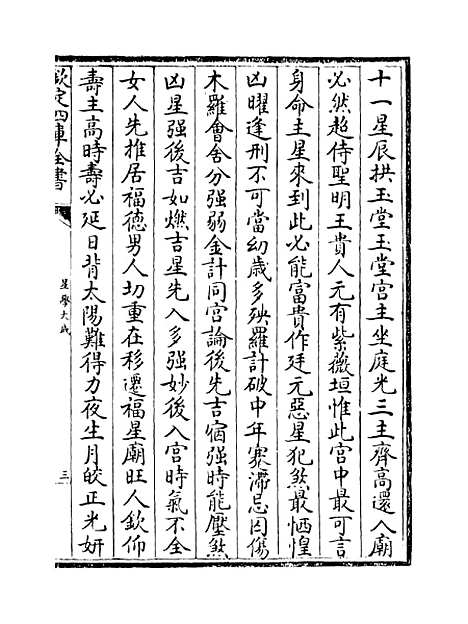 十一星辰拱玉堂玉堂宫主坐庭光三主齊高還入廟
必然超侍聖明王貴人元有紫薇垣惟此宫中最可言
身命主星來到此必能富貴作廷元惡星犯煞最恓惶
凶曜逢刑不可當幼歲多殃羅計破中年寒滯忌因傷
木羅會舍分强弱金計同宫論後先吉宿强時能壓煞
凶星强後吉如燃吉星先入多强妙後入宫時氣不全
女人先推居福德男人切重在移遷福星廟旺人欽仰
壽主高時壽必延日背太陽難得力夜生月皎正光妍
欽定四庫全書
星學大成
三